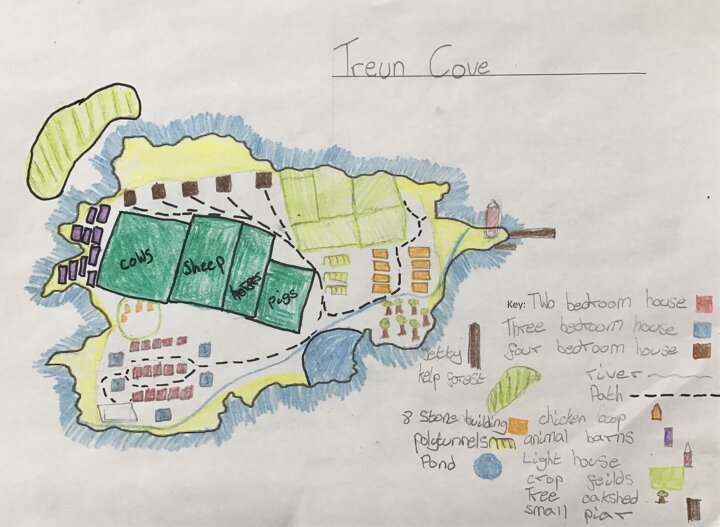 Treun Cove
cows
sheep
horses
pigs
Key: Two bedroom house
Three bedroom house
four bedroom house
river
Path
Jetty
kelp forest
8 Stone building
polytunnels
Pond
chicken coop
animal barns
Light house
crop feilds
Tree oakshed
small piar